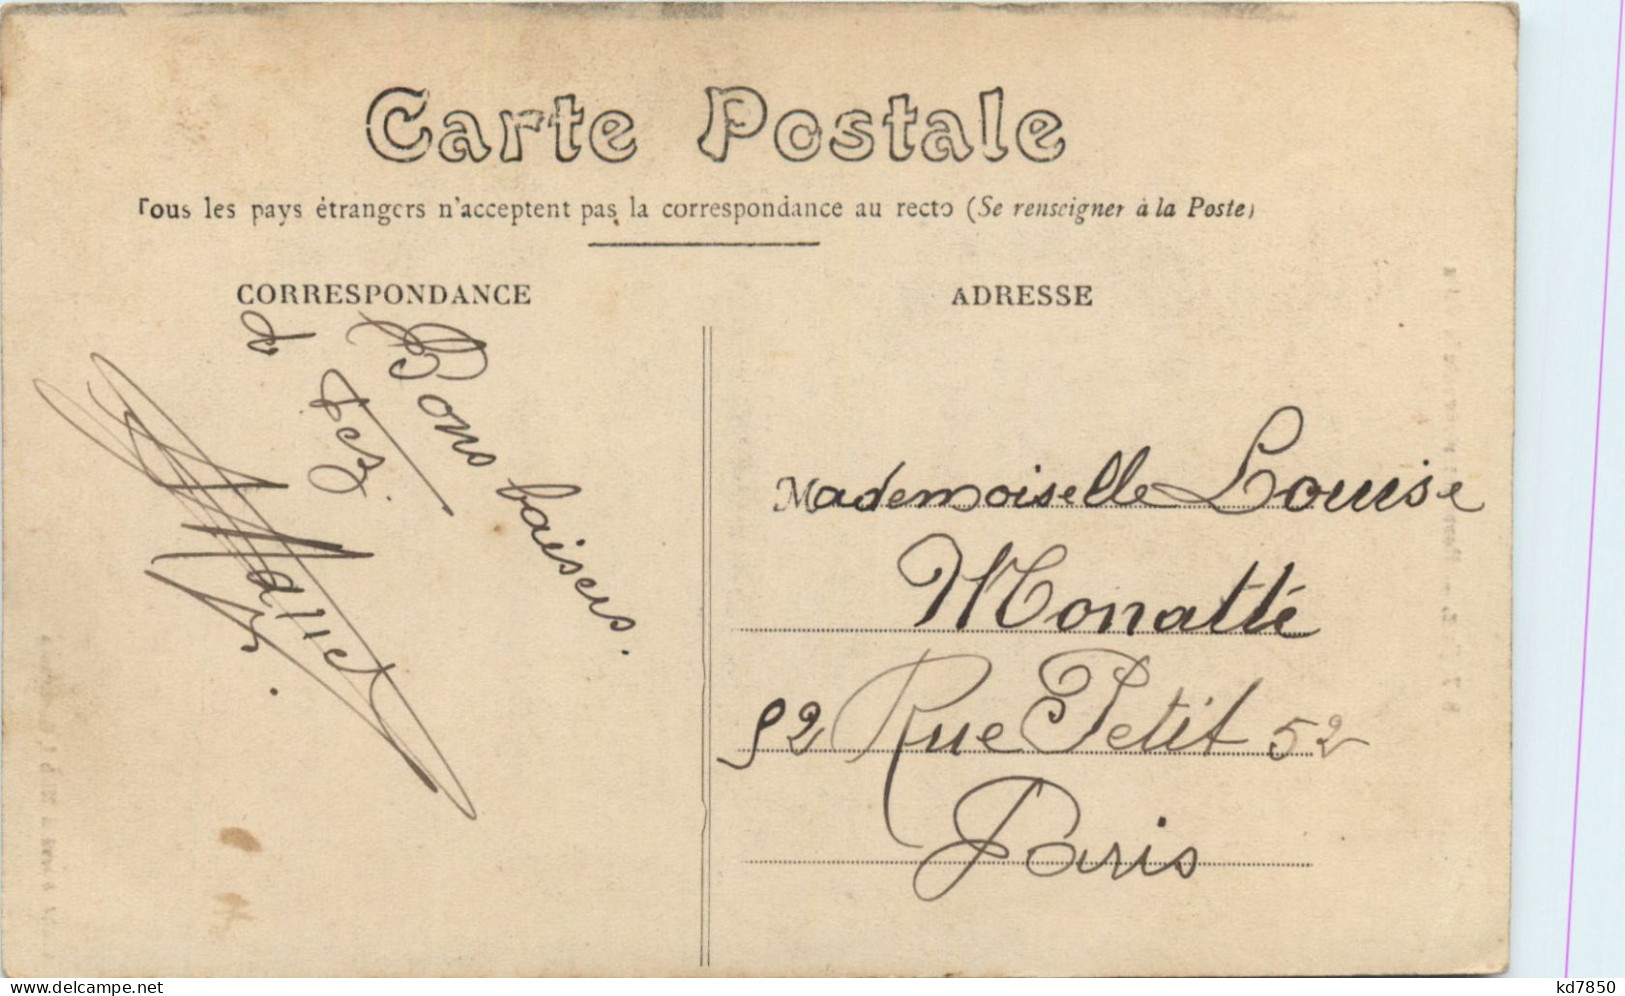 Carte Postale
Tous les pays étrangers n'acceptent pas la correspondance au recto (Se renseigner à la Poste)
CORRESPONDANCE
ADRESSE
Bons baisers.
de Fez.
Mademoiselle Louise
Monatté
52 Rue Petit 52
Paris
kd7850